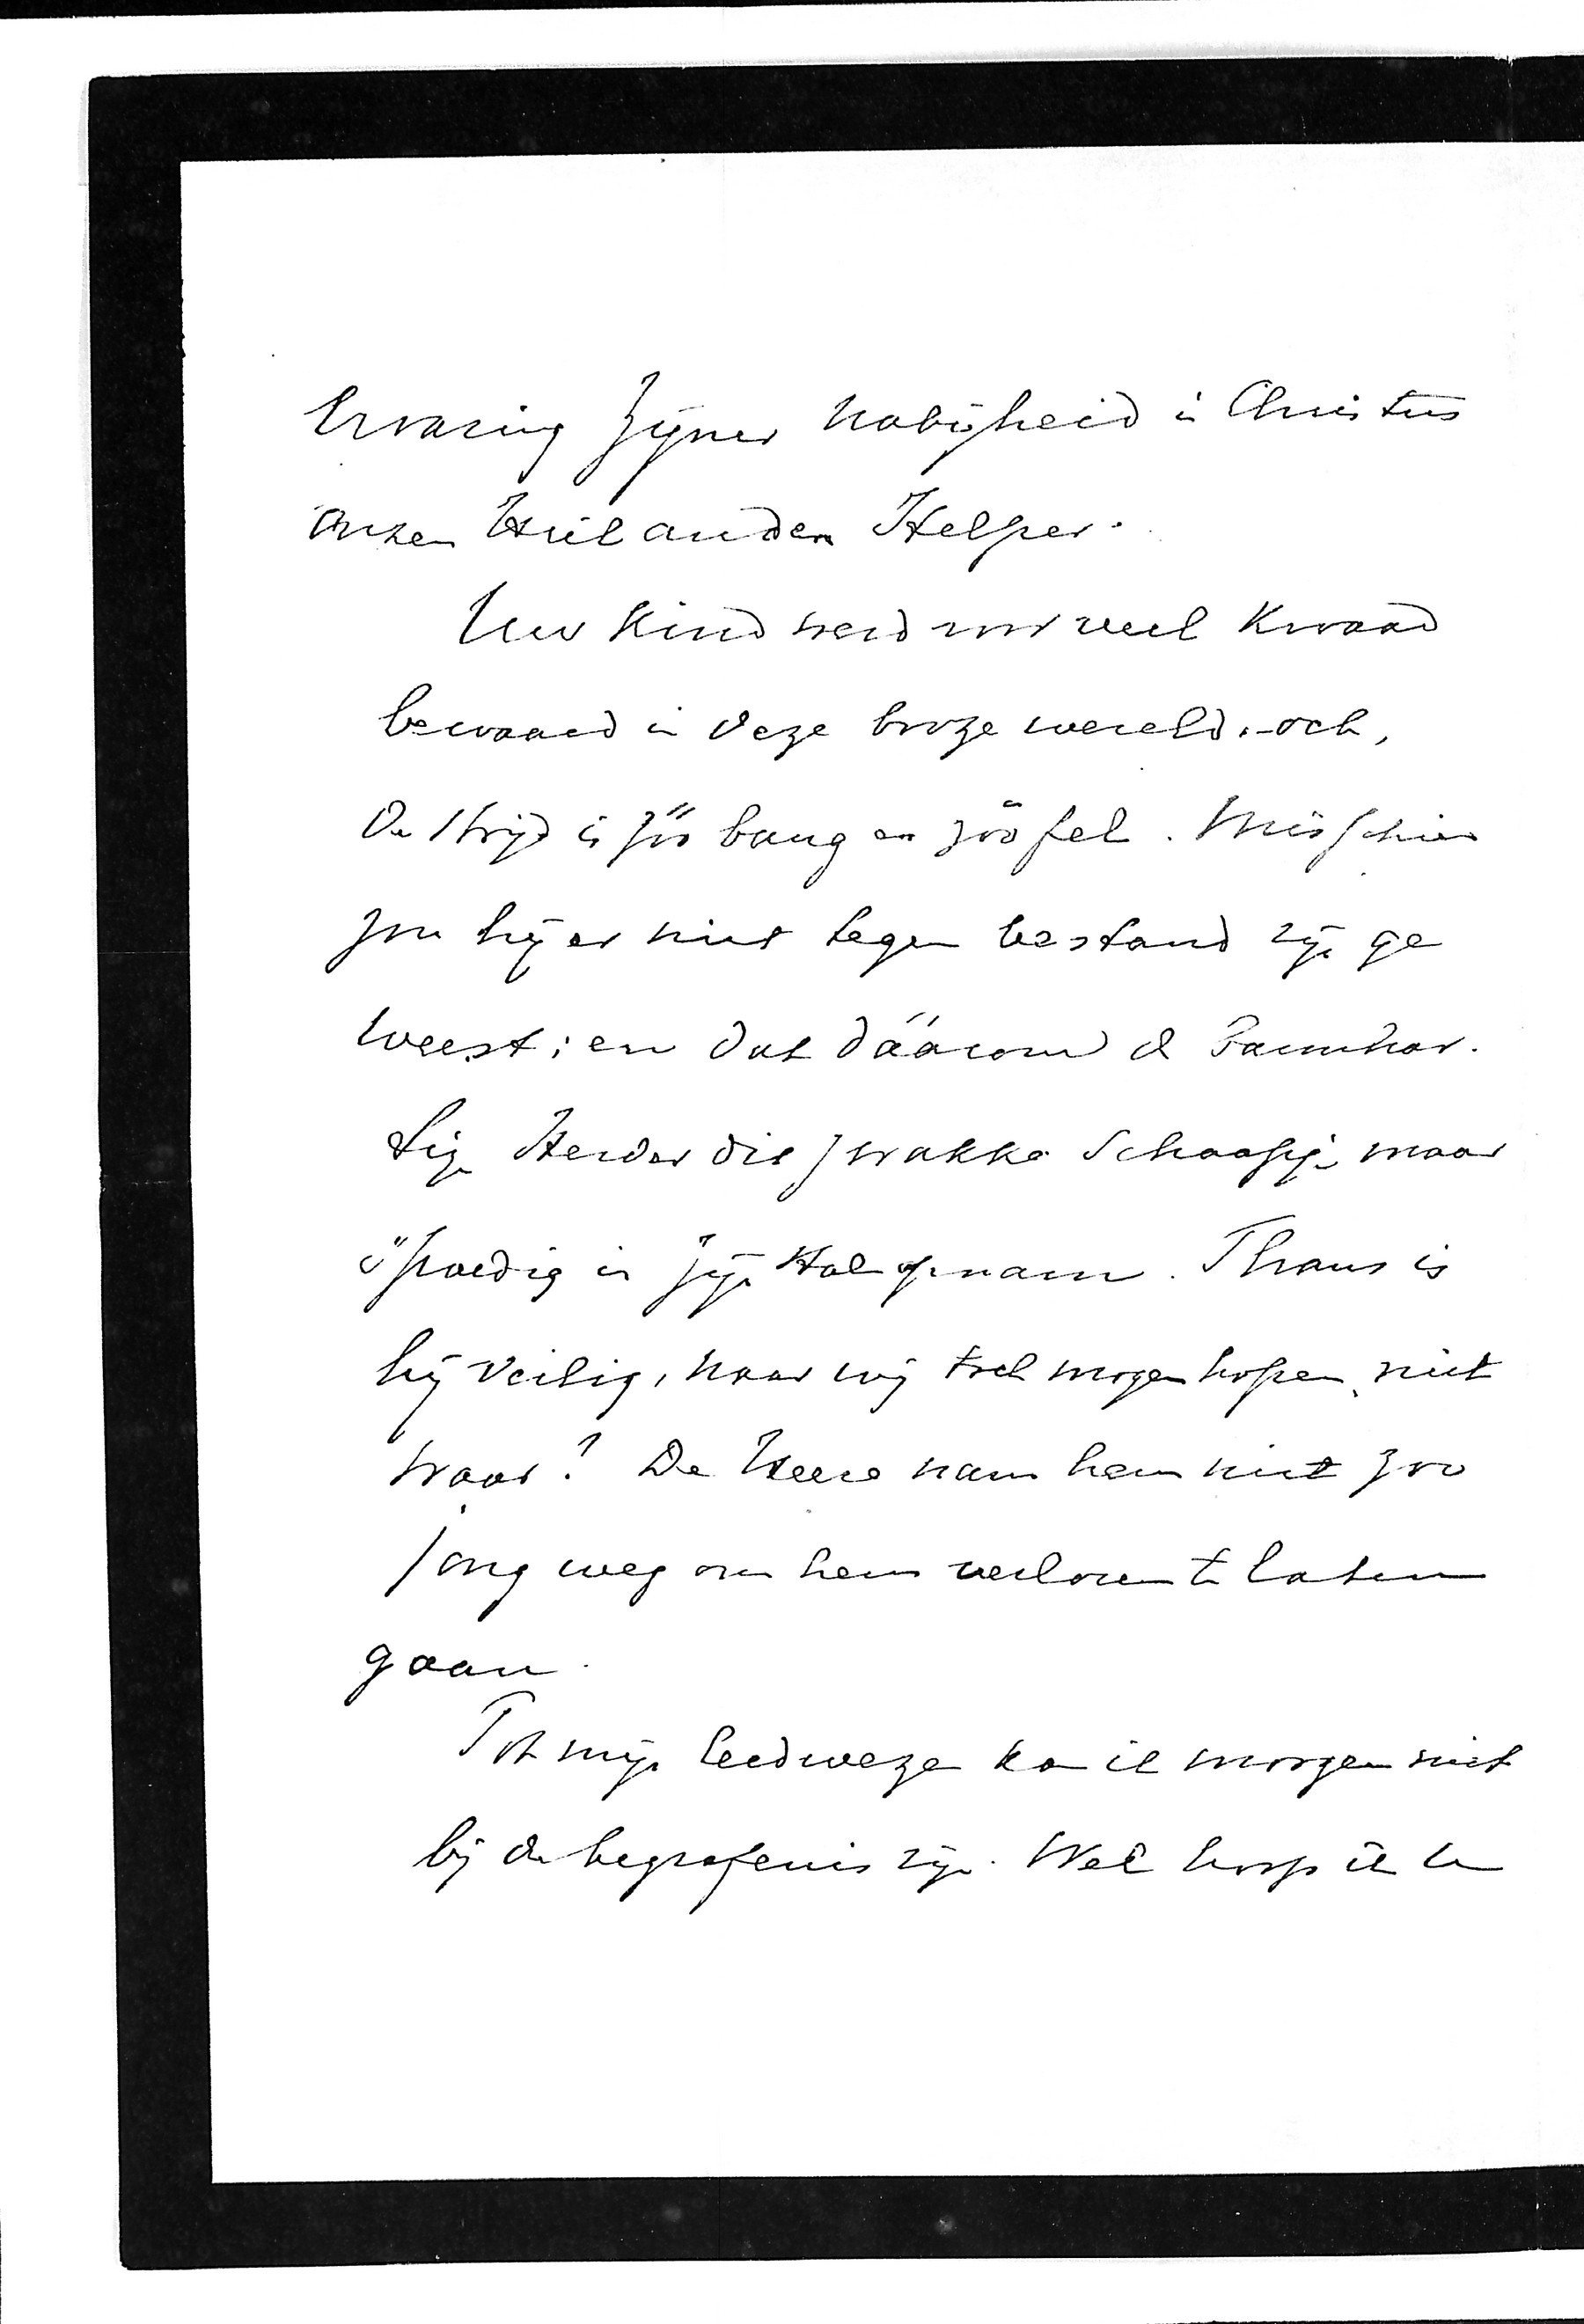 ervaring Zijner nabijheid in Christus
onzen Heiland en Helper.
Uw kind werd voor veel kwaad
bewaard in deze booze wereld, och,
de strijd is zóó bang en zóó fel. Misschien
zou hij er niet tegen bestand zijn ge
weest; en dat dáárom de Barmhar-
tige Herder dit zwakke schaapje maar
spoedig in zijn stal opnam. Thans is
hij veilig, naar wij toch mogen hopen, niet
waar? De Heere nam hem niet zoo
jong weg om hem verloren te laten
gaan.
Tot mijn leedwezen kan ik morgen niet
bij de begrafenis zijn. Wel hoop ik